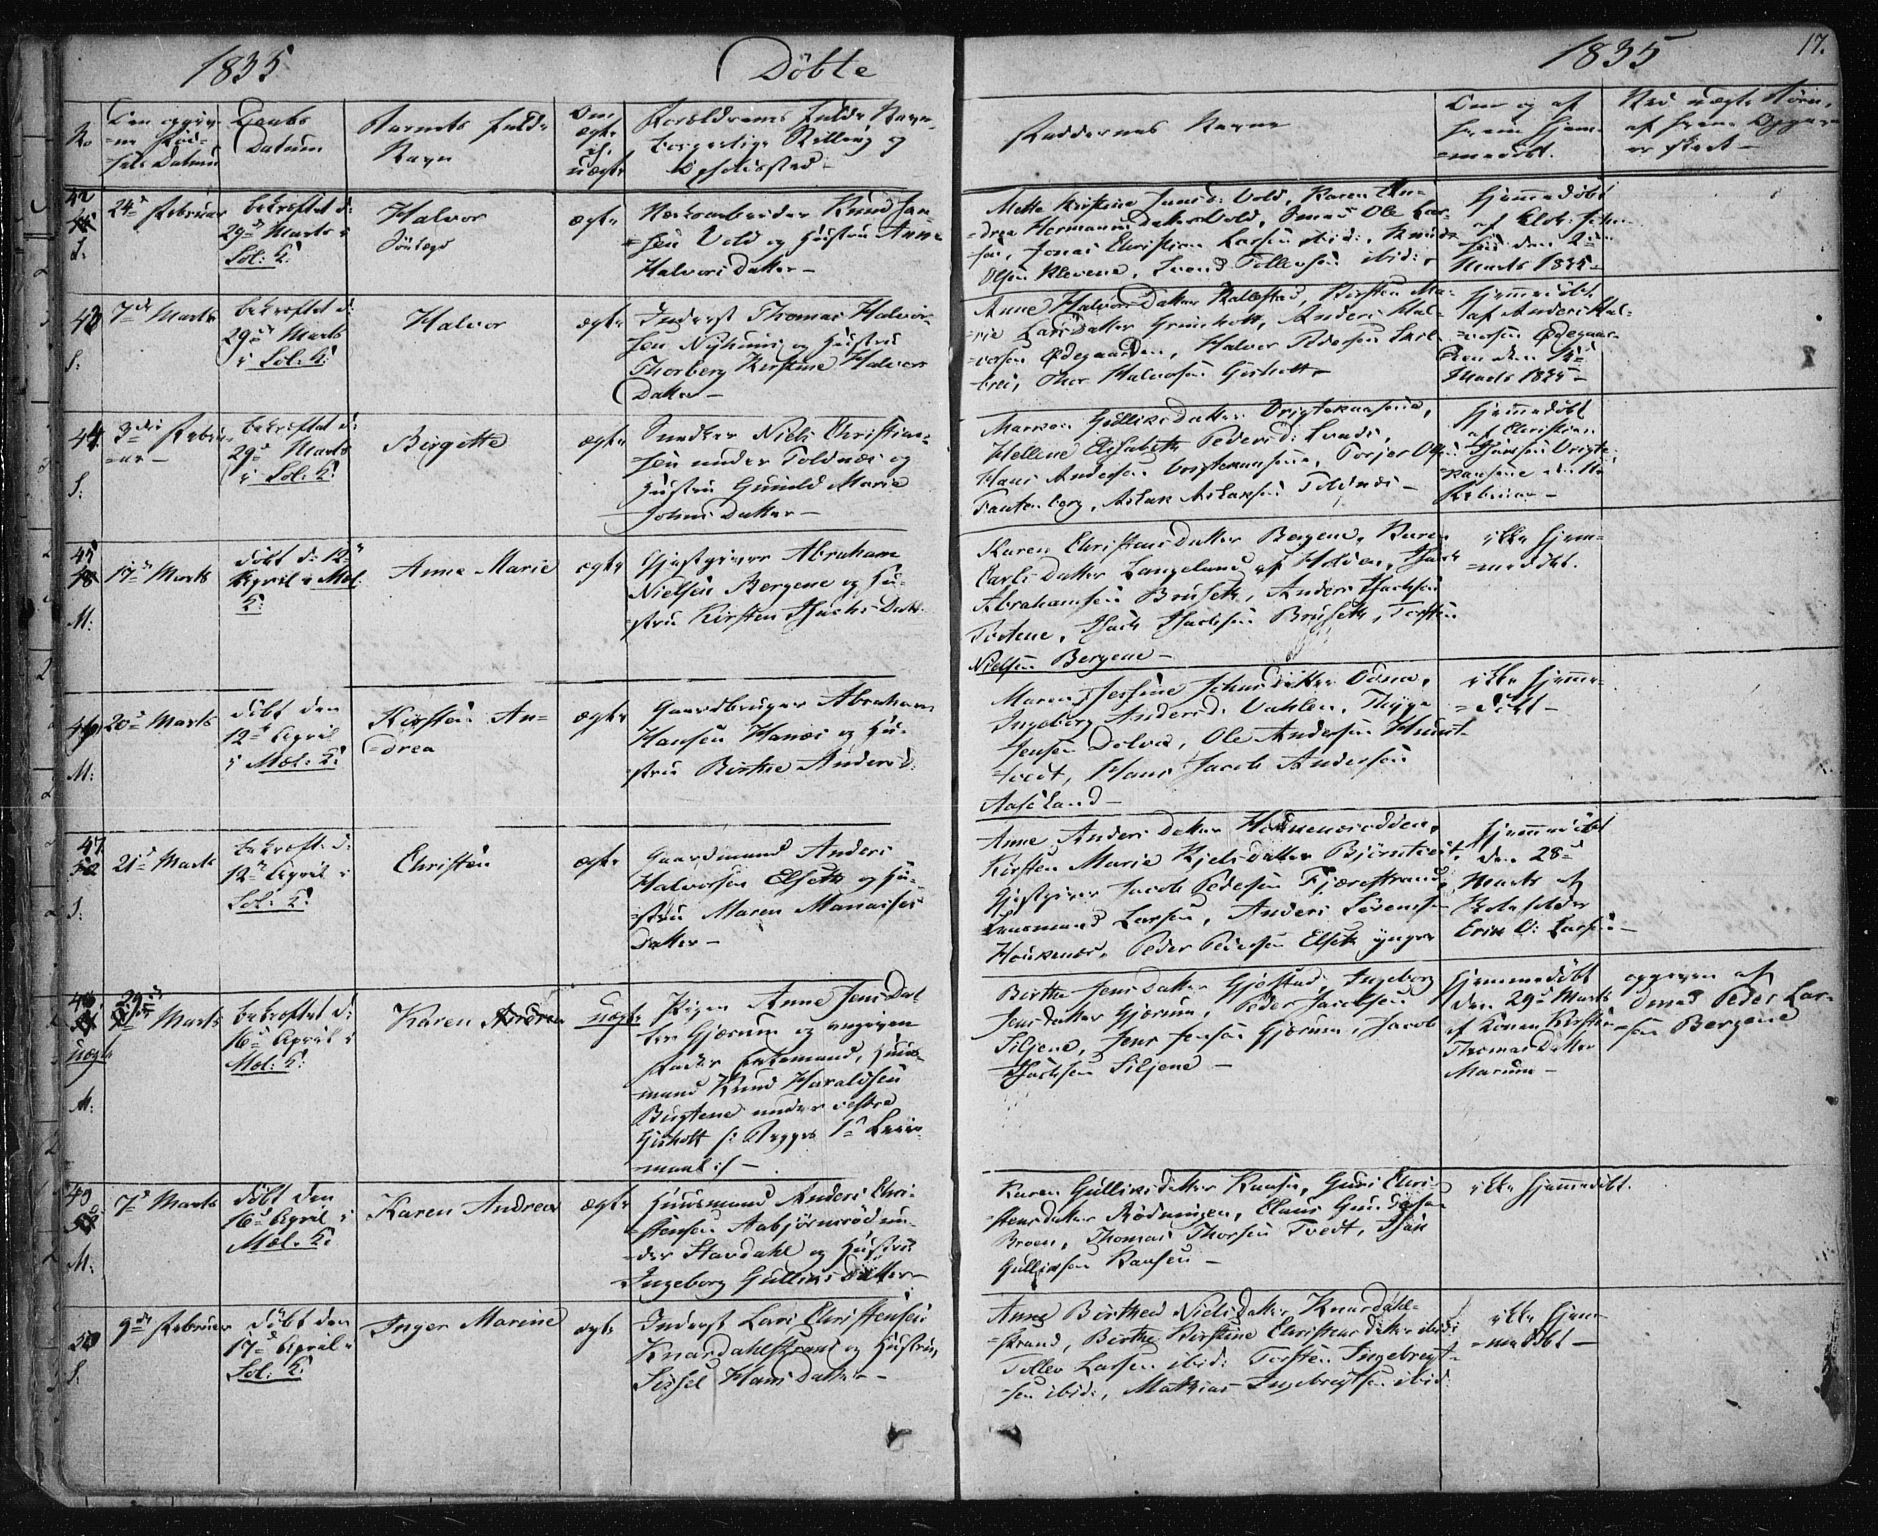 1835
Døbte
1835
17.
No
Den opgiv-
=ne Fød-
sels Datum
Daabs
Datum
Barnets fulde
Navn
Om
ægte
el.
uægte
Forældrenes fulde Navn
borgerlige Stilling og
Opholdssted
Faddernes Navne
Om og af
hvem hjem-
=medøbt.
Ved uægte Børn,
af hvem Opgaven
er skeet
42
S:
24de Februar
bekræftet d:
29de Marts i
Sol: K:
Halvor
ægte
Knud Jan-
=sen Vold og Hustru Anne
Halvors Datter
Mette Kirstine Jansd: Vold, Karen An-
=drea Hermanns Datter Vold, Ole Lar-
sen, Jonas Christian Larsen ibid:, Knud
Olsen Klevene, Svend Tollevsen ibid:
Hjemmedøbt
den 2den
Marts 1835
43
S:
7de Marts
bekræftet d:
29de Marts
i Sol: K:
Halvor
ægte
Inderst Thomas Halvor-
sen Nyhuus og Hustru
Thorberg Kirstine Halvors
Datter
Anne Halvors Datter Kallestad, Kirsten Ma-
=rie Lars Datter Grimholt, Anders Hal-
=vorsen Ødegaarden, Halvor Pedersen
Thor Halvorsen Gisholt
Hjemmedøbt
af Anders Hal-
=vorsen Ødegaar-
den den
Marts 1835
44
S:
3die Febru-
=ar
bekræftet d:
29de Marts
i Sol: K:
Birgitte
ægte
Snedker Niels Christian-
sen under Toldnæs og
Hustru Gunild Marie
Johns Datter
Maren Gulliks Datter
Hellene Elisabeth Peders d:
Hans Andersen Torjer Ols:
Aslak Aslaksen Toldnæs
Hjemmedøbt
af Christian
Februar
45
M:
17de Marts
døbt d: 12te
April i Mel:
K:
Anne Marie
ægte
Gjestgiver Abraham
Nielsen Bergene og Hu-
=stru Kirsten Isachs Datt:
Karen Christens Datter Bergene, Karen
Carls Datter Langeland af Holden, Isach
Abrahamsen Bruseth, Anders Isachsen
Isach Isachsen Bruseth, Torsten
Nielsen Bergene
ikke hjem-
=medøbt.
46
M:
20de Marts
døbt den
12te April
i Mel: K:
Kirsten An-
=drea
ægte
Gaardbruger Abraham
Hansen Hanæs og Hu-
=stru Birthe Andersd:
Maren Jessine Johns Datter
Ingeborg Andersd: Vahlen,
Jensen Dolva, Ole Andersen
Hans Jacob Andersen
Aaseland
ikke hjemme-
=døbt
47
S:
21de Marts
bekræft: d:
12te April i
Sol: K:
Christen
ægte
Gaardmand Anders
Halvorsen Elseth og Hu-
=stru Maren Manasses
Datter
Anne Anders Datter
Kirsten Marie Kjels Datter Bjørntvedt,
Gjestgiver Jacob Pedersen Fjærestrand,
Lensmand Larsen, Anders Sørensen
Houkenæs, Peder Pedersen Elseth yngre
Hjemmedøbt
den 28de
Marts af
Skoleholder
Erik O: Larsen
48
uægte
M:
29de
Marts
bekræftet d:
16de April i
Mel: K:
Karen Andrea
uægte
Pigen Anne Jens Dat-
ter Gjærum og angiven
Fader Enkemand, Huus-
mand Knud Haraldsen
Bugtene under vestre
Gisholt /: Begges 1ste Leier-
maal :/
Birthe Jens Datter Gjøstad, Ingeborg
Jens Datter Gjærum, Peder Jacobsen
Siljene, Jens Jensen Gjærum, Jacob
Isachsen Siljene
Hjemmedøbt
den 29de Marts
af Konen Kirstine
Thomas Datter
Marum
opgiven af
Peder Lar-
=sen Bergene
49
M:
7de Marts
døbt den
16de April i
Mel: K:
Karen Andrea
ægte
Huusmand Anders Chri-
stensen Aabjørnsrød un-
=der Stavdahl og Hustru
Ingeborg Gulliks Datter
Karen Gulliks Datter Kaasen, Guri Chri-
stens Datter Rødningen, Claus Gundersen
Broen, Thomas Thorsen Tvedt,
Gulliksen Kaasen
ikke hjemmedøbt.
50
S:
9de Februar
døbt den
17de April i
Sol: K:
Inger Marine
ægte
Inderst Lars Christensen
Knardahlstrand og Hustru
Sissel Hans Datter
Anne Birthea Niels Datter Knardahl-
=strand, Birthe Kirstine Christens Datter ibid:
Tollev Larsen ibid: Torsten Ingebregt-
sen ibid:, Mathias Ingebregtsen ibid:
ikke hjem-
=medøbt